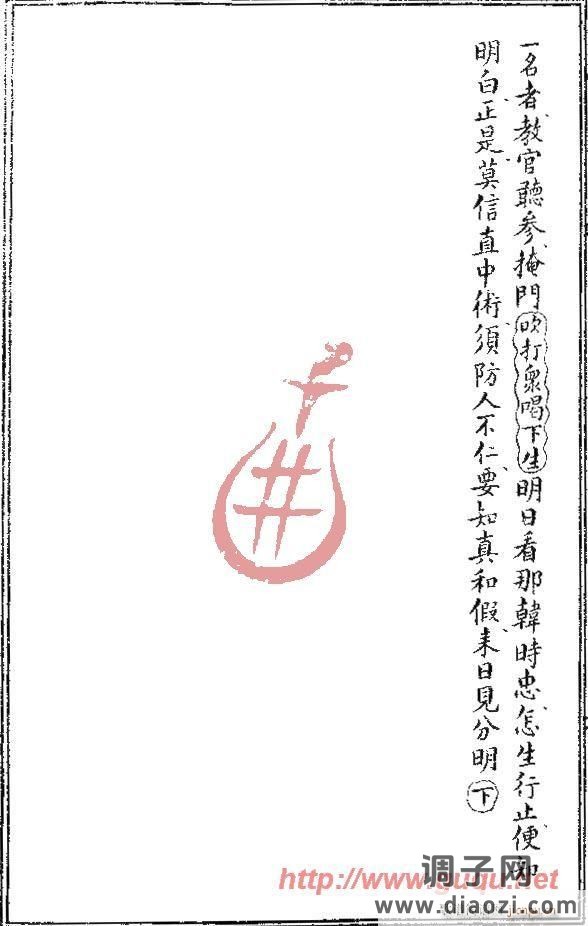 一名者教官聽參掩門吹打衆喝下生明日看那韓時忠怎生行止便卽
明白正是莫信直中術須防人不仁要知真和假来日見分明下
http://www.guqu.net
调子网
www.diaozi.com